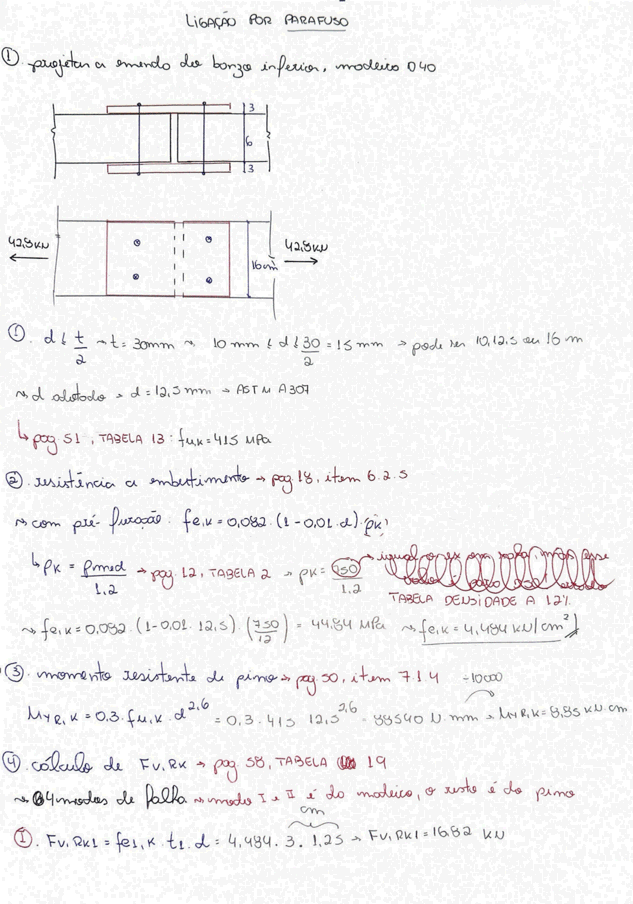 LIGAÇÃO POR PARAFUSO
① projetar a emenda do banzo inferior, madeira D40
3
6
3
42,8KN
42,8KN
16cm
①. d ≤ t/2 ⤳ t = 30mm ⤳ 10 mm ≤ d ≤ 30/2 = 15 mm → pode ser 10, 12,5 ou 16 m
⤳ d adotado → d = 12,5 mm → ASTM A307
↳ pag. 51, TABELA 13: fu,k = 415 MPa
②. resistência a embutimento → pag. 18, item 6.2.5
⤳ com pré-furação. fe,k = 0,082 . (1 - 0,01 . d) . ρk
↳ ρk = ρmed/1,2 → pag. 12, TABELA 2 → ρk = 750/1,2
TABELA DENSIDADE A 12%
⤳ fe,k = 0,082 . (1 - 0,01 . 12,5) . (750/12) = 44,84 MPa ⤳ fe,k = 4,484 kN/cm²
③. momento resistente do pino → pag. 50, item 7.1.4 ÷10000
MyR,k = 0,3 . fu,k . d^2,6 = 0,3 . 415 12,5^2,6 = 88540 N . mm → MyR,k = 8,85 KN.cm
④. cálculo de Fv,Rk → pag 58, TABELA 19
⤳ 04 modos de falha ⤳ modo I e II é da madeira, o resto é do pino
cm
Ⓘ. Fv,Rk1 = fe1,k . t1 . d = 4,484 . 3 . 1,25 → Fv,Rk1 = 16,82 KN